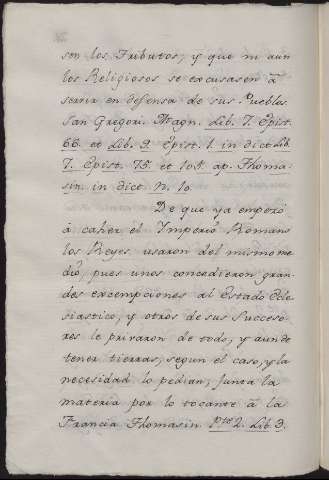 sen los Tributos, y que ni aun
los Religiosos se excusasen â
servir en defensa de sus Pueblos.
San Gregori. Magn. Lib. 7. Epist.
66. et Lib. 9. Epist. 1. in dict Lib.
7. Epist. 75. et 101. ap. Thoma-
sin. in dict. N. 10.
De que ya emperó
â caher el Imperio Romano
los Reyes usaron del mismo me
dio, pues unos concedieron gran-
des excempciones al Estado Ecle
siastico, y otros de sus Succeso-
res le privaron de todo, y aun de
tener tierras, segun el caso, y la
necesidad lo pedian; Junta la
materia por lo tocante â la
Francia Thomasin. Pte. 2. Lib. 3.